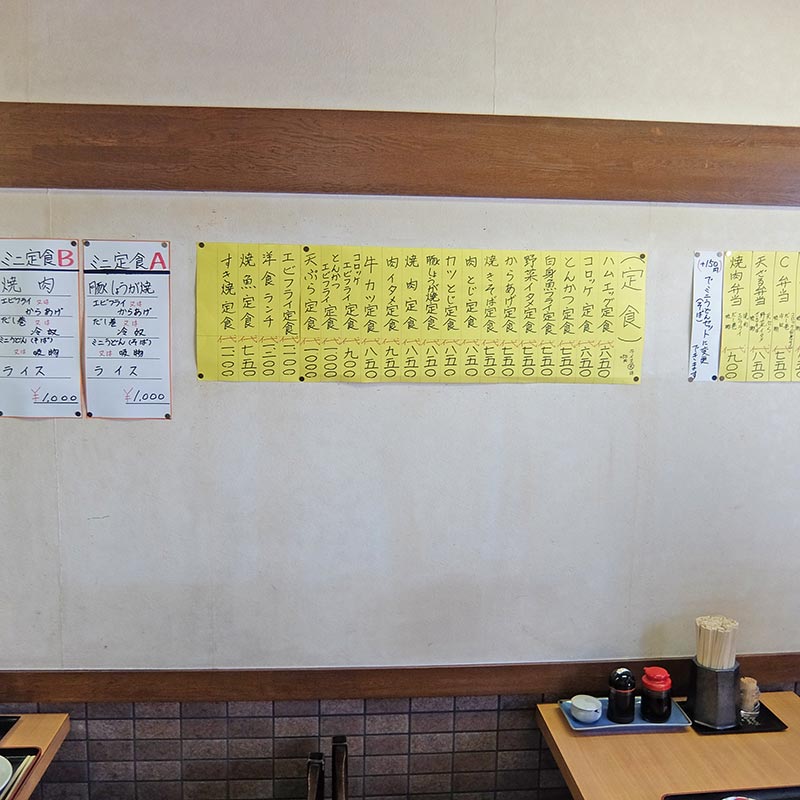 ミニ定食B
焼肉
エビフライ又は
からあげ
だし巻又は
冷奴
ミニうどん(そば)
又は吸物
ライス
¥1,000
ミニ定食A
豚しょうが焼
エビフライ又は
からあげ
だし巻又は
冷奴
ミニうどん(そば)
又は吸物
ライス
¥1,000
(定食)
ハムエッグ定食 六五〇
コロッケ定食 六五〇
とんかつ定食 七五〇
白身魚フライ定食 七五〇
野菜イタメ定食 七五〇
からあげ定食 七五〇
焼きそば定食 七五〇
肉とじ定食 八五〇
カツとじ定食 八五〇
豚しょうが焼定食 八五〇
焼肉定食 八五〇
肉イタメ定食 八五〇
牛カツ定食 八五〇
コロッケエビフライ定食 九〇〇
とんかつエビフライ定食 一〇〇〇
天ぷら定食 一〇〇〇
エビフライ定食 一一〇〇
洋食ランチ
焼魚定食 七五〇
すき焼定食
(+150円)
C弁当
天ざる弁当 八五〇
焼肉弁当 九〇〇